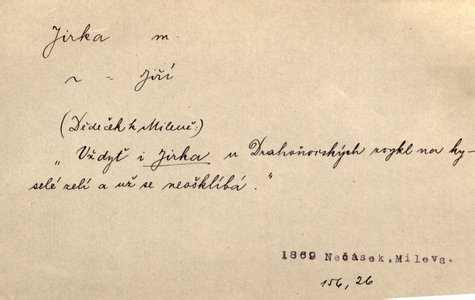 Jirka m.
~ = Jiří
(Dědeček k Mileně:)
„Vždyť i Jirka u Drahoňovských zvykl na ky-
selé zelí a už se neošklíbá."
1869 Nečásek, Mileva.
156, 26